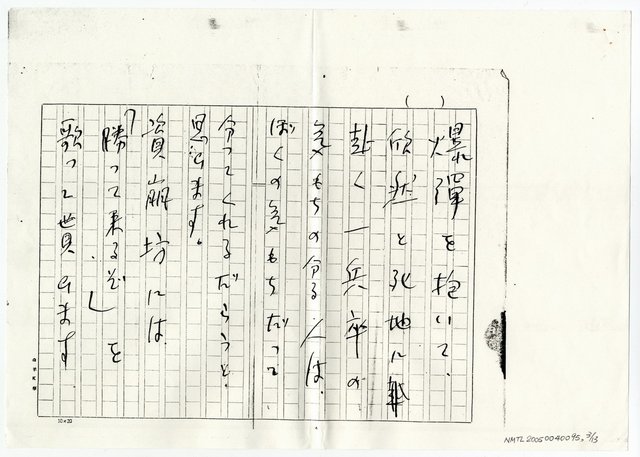 爆弾を抱いて、
欣然と死地に
赴く一兵卒の
気もちの分る人は、
ぼくの気もちだって
分ってくれるだらうと、
思ひます。
資崩坊には
「勝って来るぞ」を
歌って貰ひます
(　)
10×20
NMTL20050040095, 3/13